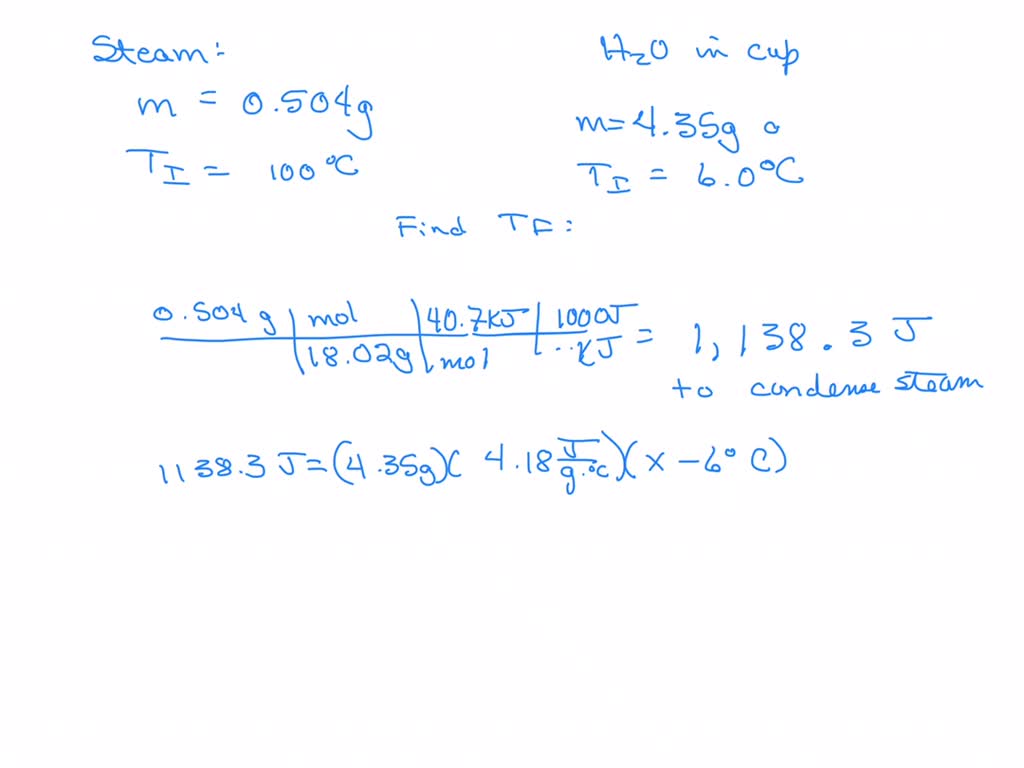 Steam:
m = 0.504g
T_I = 100°C
H₂O in cup
m=4.35g
T_I = 6.0°C
Find T_F:
0.504 g | mol | 40.7KJ | 1000J = 1,138.3 J
18.02g | mol | KJ
to condense steam
1138.3 J=(4.35g)( 4.18 J/g.°C)(x -6° C)